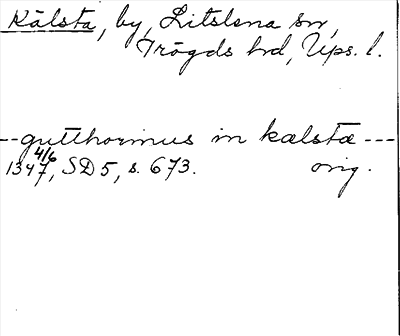 Kälsta, by, Litslena sn,
Trögds hd, Ups. l.
--gutthormus in kælstæ---
1347 4/6, SD 5, s. 673. orig.